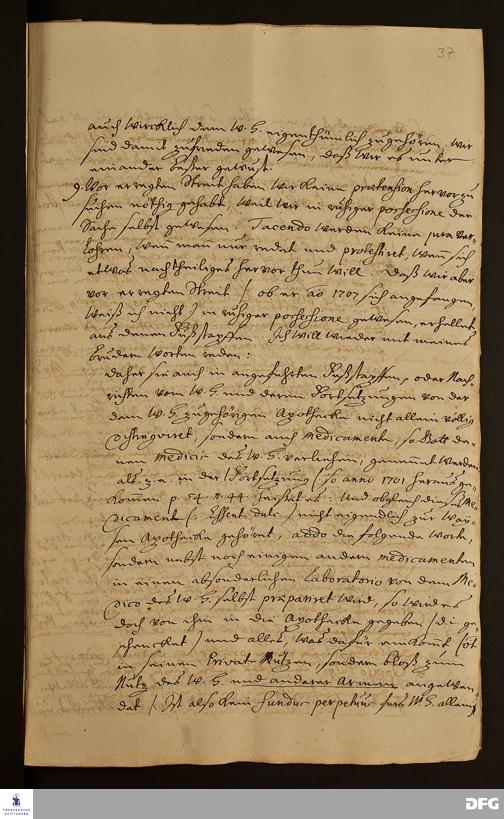 37
auch wircklich dem W. H. eigenthümlich zugehören. Wir
sind damit zufrieden gewesen, daß wir es unter
einander besser gewust.
9. Vor erregten Streit haben wir keine praetension hervorzu
suchen nöthig gehabt, weil wir in ruhiger possessione der
Sache selbst gewesen. Tacendo werden keine jura ver-
lohren, wenn man nur redet und protestiret, wenn sich
etwas nachtheiliges hervor thun will. Daß wir aber
vor erregten Streit /: ob er aõ 1707 sich angefangen,
weiß ich nicht) in ruhiger possessione gewesen, erhellet
aus denen Fußstapffen. Ich will wieder mit meines
Brudern Worten reden:
daher sie auch in angeführten Fußstapffen, oder Nach-
richten vom W. H. und deren Fortsetzungen von der
dem W. H. zugehörigen Apothecke nicht allein völlig
distingviret, sondern auch Medicamenta, so Gott de-
nen Medicis des W. H. verliehen, genennet werden,
als z. e. in der Fortsetzung (so anno 1701 heraus ge-
kommen p. 54. n. 44. heisset es: Und obgleich dieses Me-
dicament (: Essent. dulc.) nicht eigendlich zur Way-
sen Apothecke gehört, addo die folgende Worte,
sondern nebst noch einigen andern medicamenten
in einem absonderlichen Laboratorio von dem Me-
dico des W. H. selbst praepariret wird, so wird es
doch von ihm in die Apothecke gegeben (d. i. ge-
schencket) und alles, was dafür einkomt, (ist
in seinen Privat Nutzen, sondern bloß zum
Nutz des W. H. und anderer Armen angewen
det /. Ist also kein fundus perpetuus fürs W. H. allein)
FRANCKESCHE
STIFTUNGEN
DFG